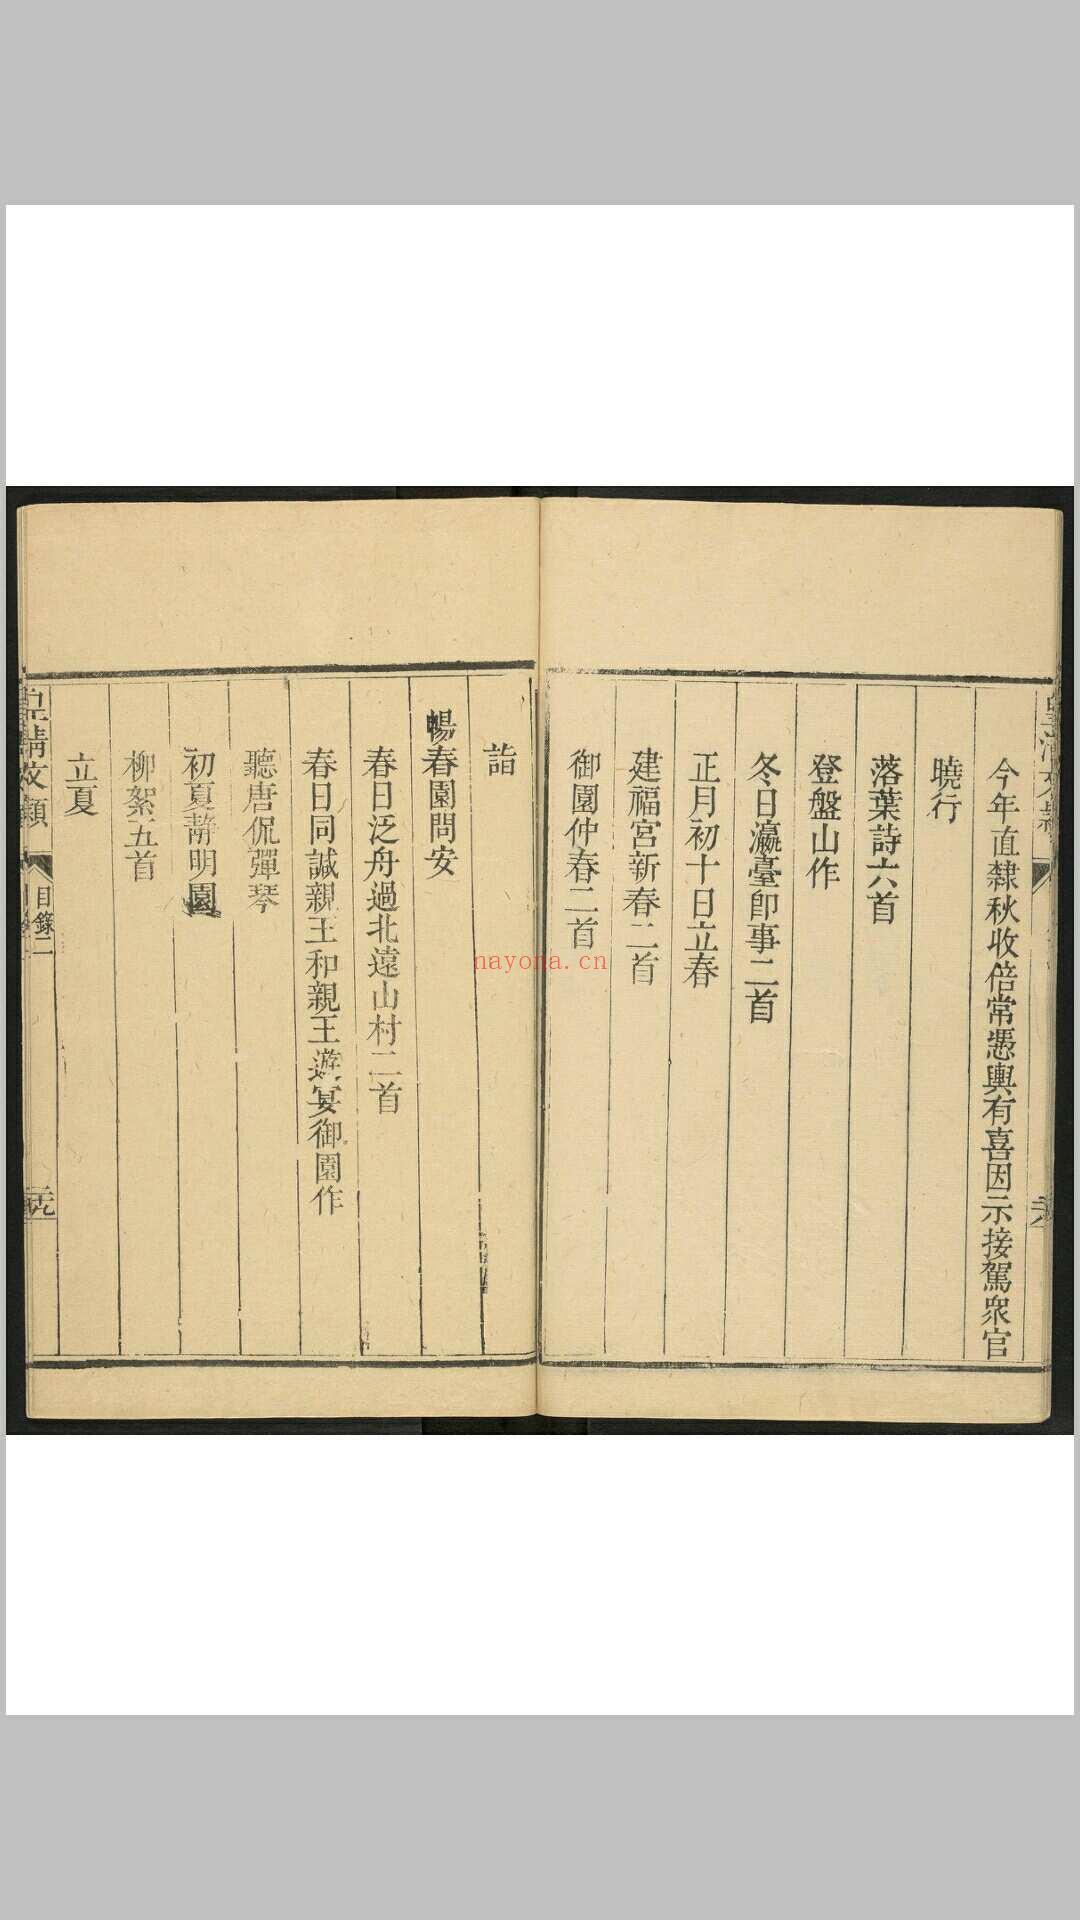 今年直隸秋收倍常憑輿有喜因示接駕衆官
曉行
落葉詩六首
登盤山作
冬日瀛臺即事二首
正月初十日立春
建福宮新春二首
御園仲春二首
詣
暢春園問安
春日泛舟過北遠山村二首
春日同諴親王和親王遊宴御園作
聽唐侃彈琴
初夏靜明園
柳絮五首
立夏
皇清文穎
目錄二
nayona.cn